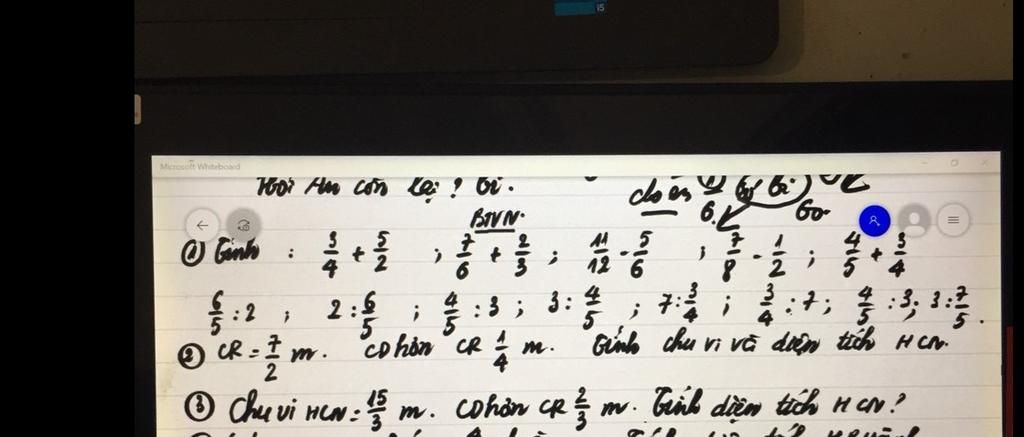 i5
Microsoft Whiteboard
Hỏi An còn lại ? bi.
BTVN.
① Tính : 3/4 + 5/2 ; 7/6 + 2/3 ; 11/12 - 5/6 ; 7/8 - 1/2 ; 4/5 + 3/4
6/5 : 2 ; 2 : 6/5 ; 4/5 : 3 ; 3 : 4/5 ; 7 : 3/4 ; 3/4 : 7 ; 4/5 : 3 ; 3 : 7/5 .
② CR = 7/2 m. CD hơn CR 1/4 m. Tính chu vi và diện tích HCN.
③ Chu vi HCN = 15/3 m. CD hơn CR 2/3 m. Tính diện tích HCN?